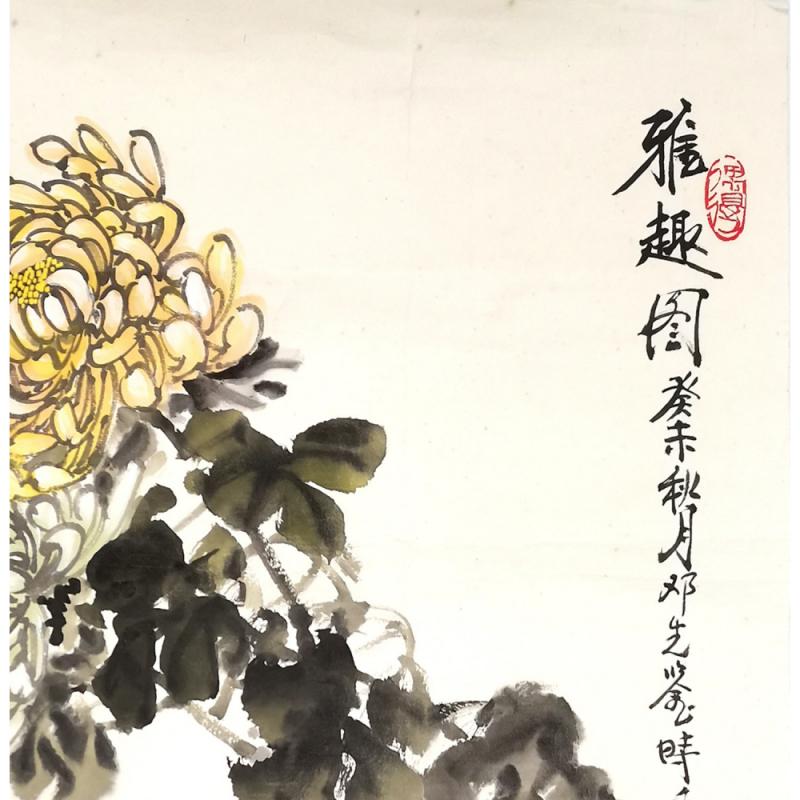 雅趣图癸未秋月邓先鉴时